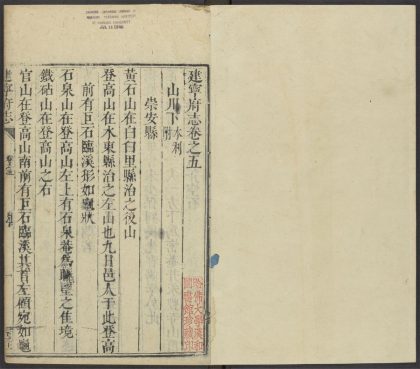 建寧府志卷之五
山川下 水利附
崇安縣
黃石山在白石里縣治之後山
登高山在水東縣治之左山也九日邑人于此登高
前有巨石臨溪形如龜狀
石泉山在登高山左上有石泉菴為眺望之佳境
鐵砧山在登高山之右
官山在登高山南前有巨石臨溪其首左傾宛如龜
建寧府志